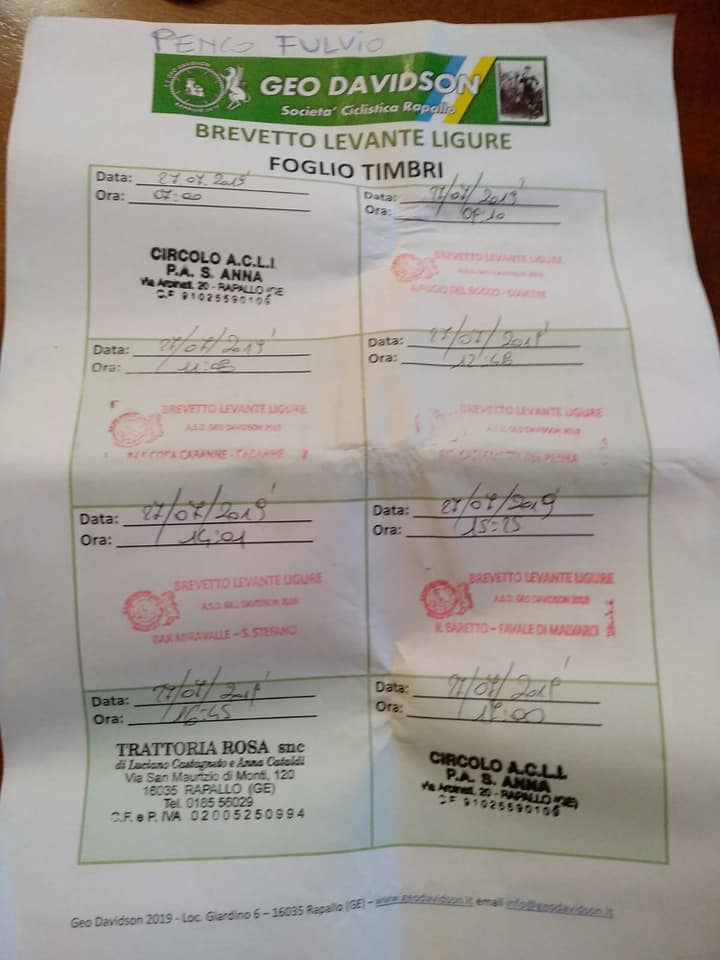 PENCO FULVIO
GEO DAVIDSON
Societa' Ciclistica Rapallo
BREVETTO LEVANTE LIGURE
FOGLIO TIMBRI
Data: 27.07.2019
Ora: 07:00
CIRCOLO A.C.L.I.
P.A. S. ANNA
Via Arpinati, 20 - RAPALLO (GE
C.F 91025590106
Data: 27/07/2019
Ora: 09:10
BREVETTO LEVANTE LIGURE
A.S.D. GEO DAVIDSON 2019
RIFUGIO DEL BOCCO -
Data: 27/07/2019
Ora: 11:03
BREVETTO LEVANTE LIGURE
A.S.D. GEO DAVIDSON 2019
BAR COFA CABANNE - CABANNE
Data: 27/07/2019
Ora: 12:48
BREVETTO LEVANTE LIGURE
A.S.D. GEO DAVIDSON 2019
Data: 27/07/2019
Ora: 14:01
BREVETTO LEVANTE LIGURE
A.S.D. GEO DAVIDSON 2019
BAR MIRAVALLE - S. STEFANO
Data: 27/07/2019
Ora: 15:25
BREVETTO LEVANTE LIGURE
A.S.D. GEO DAVIDSON 2019
IL BARETTO - FAVALE DI MALVARO
Data: 27/07/2019
Ora: 16:45
TRATTORIA ROSA snc
di Luciano Castagneto e Anna Cataldi
Via San Maurizio di Monti, 120
16035 RAPALLO (GE)
Tel. 0185 56029
C.F. e P. IVA 02005250994
Data: 27/07/2019
Ora:
CIRCOLO A.C.L.I.
P.A. S. ANNA
Via Arpinati, 20 - RAPALLO (GE)
C.F 91025590106
Geo Davidson 2019 - Loc. Giardino 6 – 16035 Rapallo (GE) – www.geodavidson.it email info@geodavidson.it